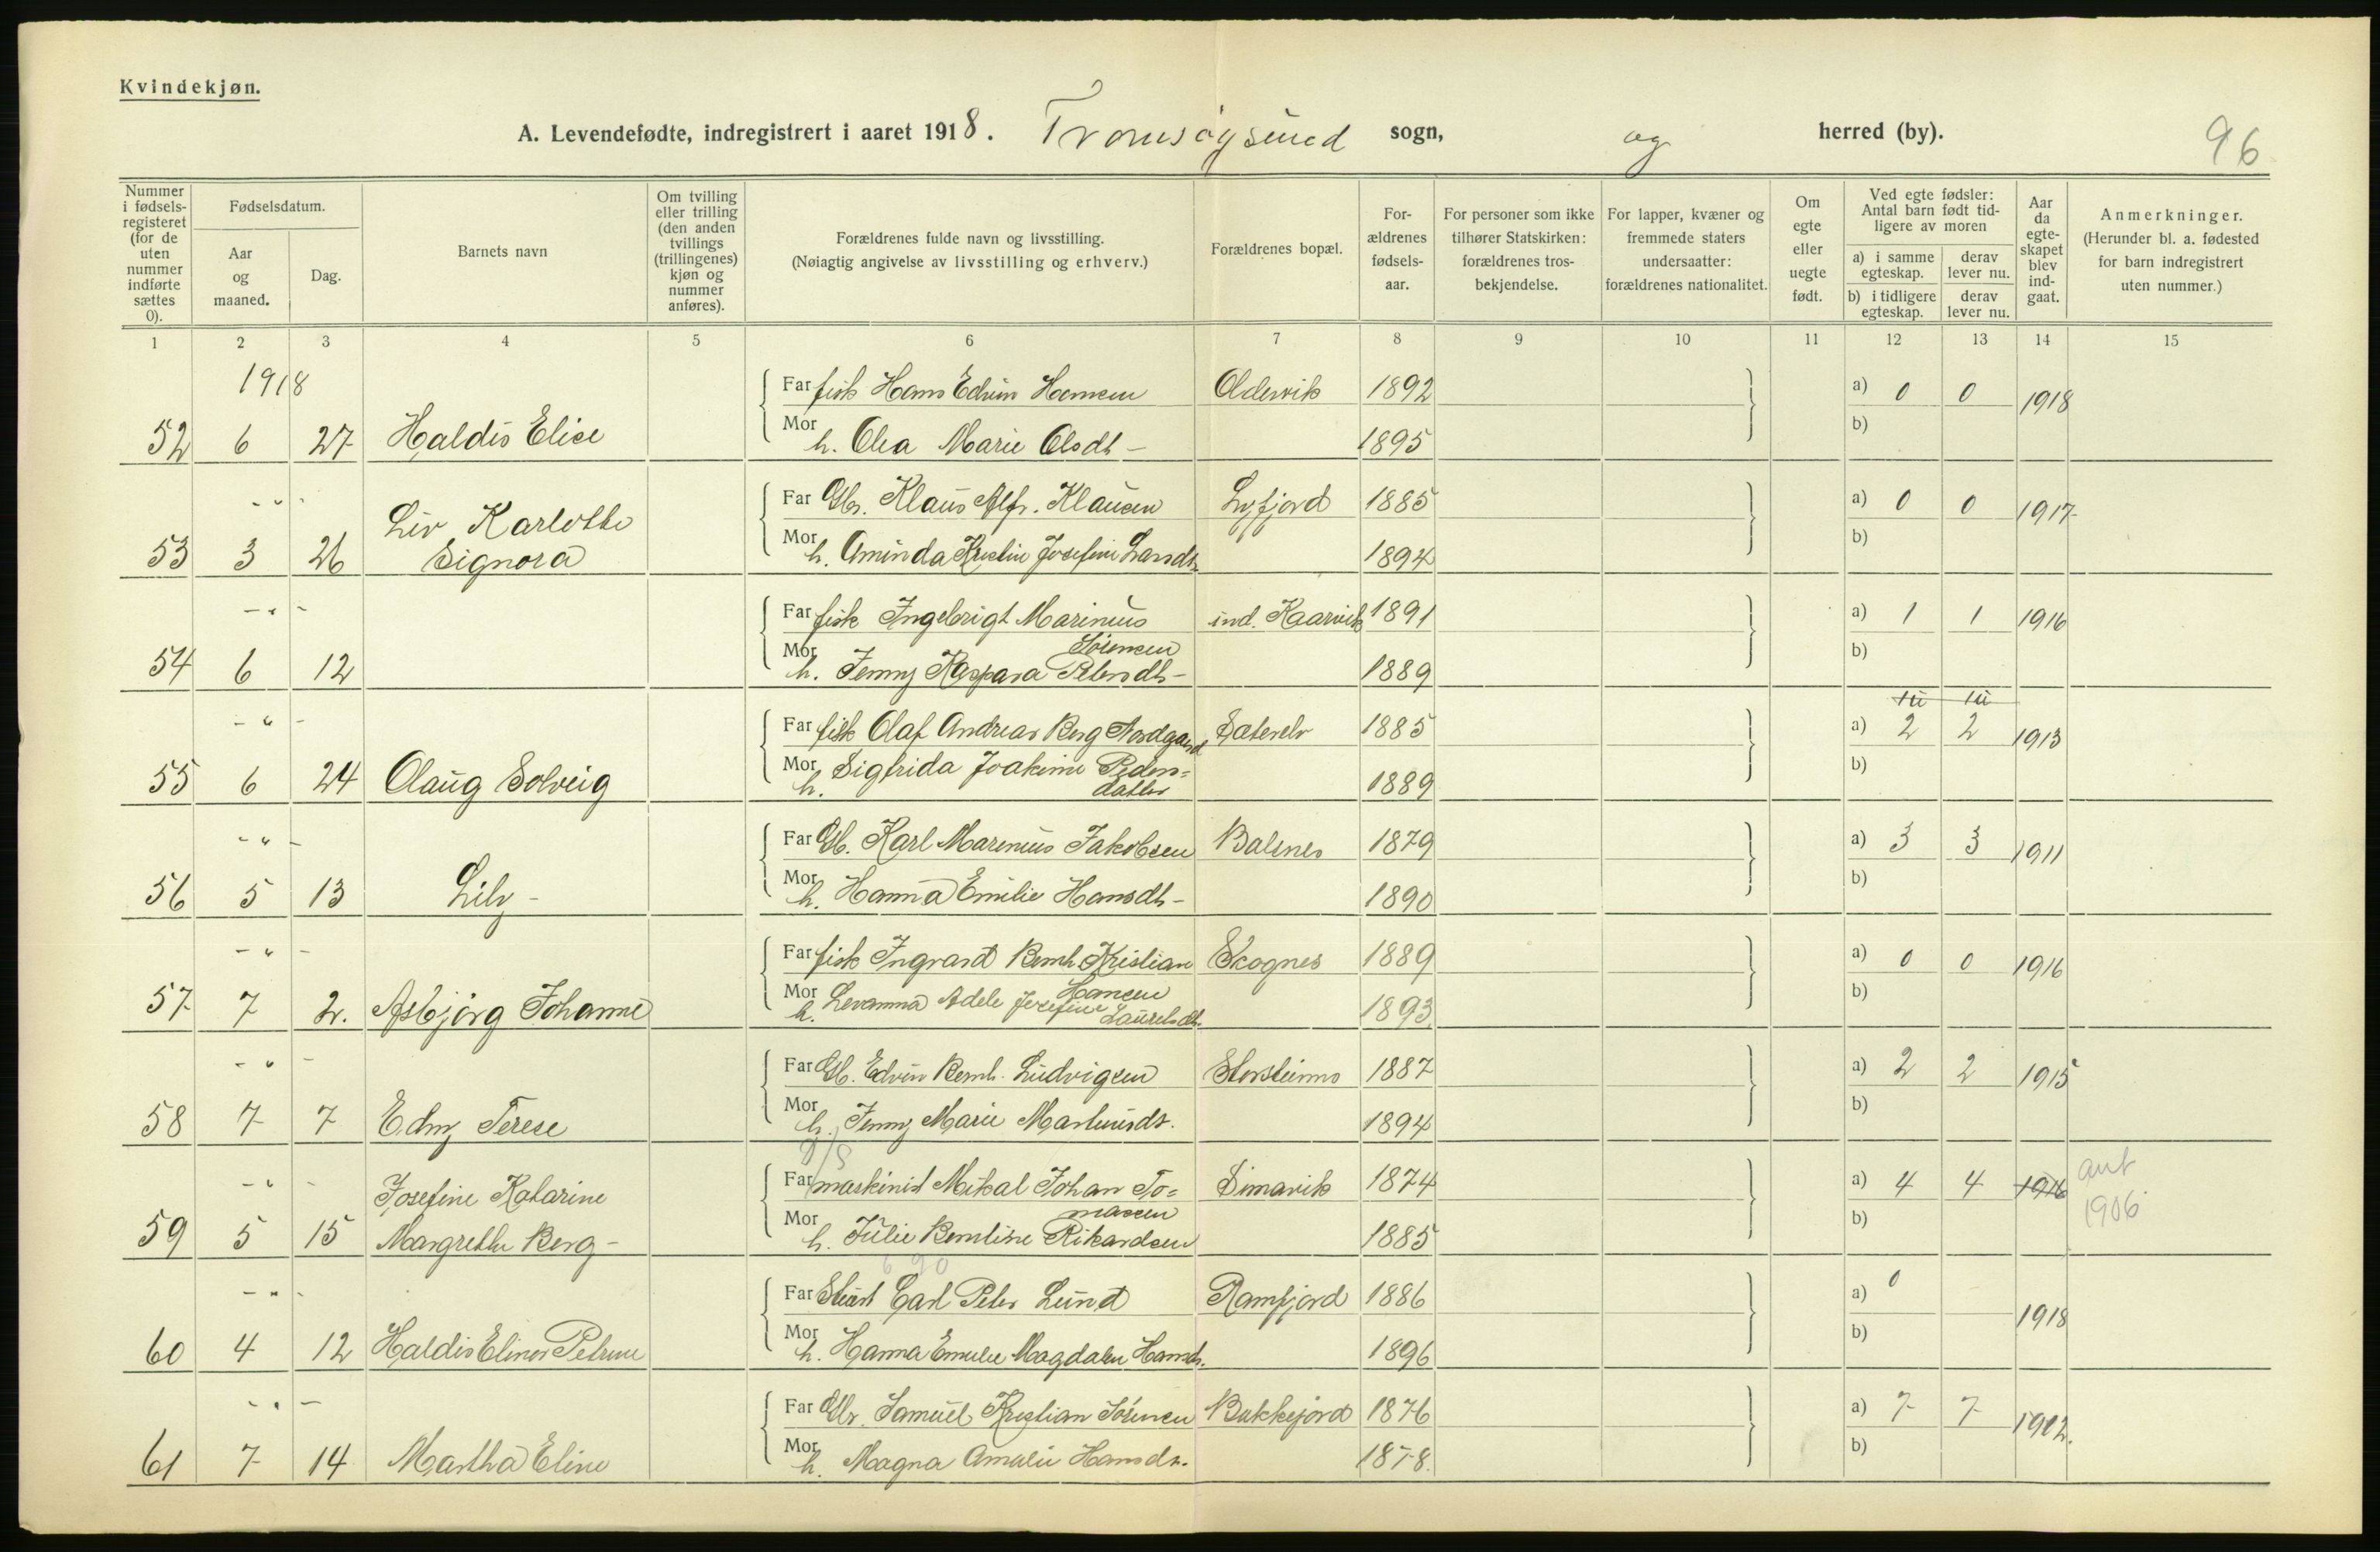 Kvindekjøn.
A. Levendefødte, indregistrert i aaret 1918. Tromsøysund sogn, og herred (by). 96
Nummer i fødselsregisteret (for de uten nummer indførte sættes 0).
Fødselsdatum.
Aar og maaned.
Dag.
Barnets navn
Om tvilling eller trilling (den anden tvillings (trillingenes) kjøn og nummer anføres).
Forældrenes fulde navn og livsstilling.
(Nøiagtig angivelse av livsstilling og erhverv.)
Forældrenes bopæl.
Forældrenes fødselsaar.
For personer som ikke tilhører Statskirken: forældrenes trosbekjendelse.
For lapper, kvæner og fremmede staters undersaatter: forældrenes nationalitet.
Om egte eller uegte født.
Ved egte fødsler: Antal barn født tidligere av moren
a) i samme egteskap. derav lever nu.
b) i tidligere egteskap. derav lever nu.
Aar da egteskapet blev indgaat.
Anmerkninger.
(Herunder bl. a. fødested for barn indregistrert uten nummer.)
1 2 3 4 5 6 7 8 9 10 11 12 13 14 15
1918
Far fisk Hans Edvin Hansen Oldervik 1892 a) 0 0 1918
52 6 27 Haldis Elise Mor h. Olea Marie Olsdt - 1895 b)
- " -
Far Gbr. Klaus Alfr. Klausen Lyfjord 1885 a) 0 0 1917
Liv Karlotte
53 3 26 Signora Mor h. Aminda Kristine Josefine Larsdtr 1894 b)
- " -
Far fisk Ingebrigt Marinius Sørensen ind. Kaarvik 1891 a) 1 1 1916
54 6 12 Mor h. Jenny Kaspara Petersdt- 1889 b)
- " -
Far fisk Olaf Andreas Berg Nordgaard Sæterelv 1885 a) 2 2 1913
55 6 24 Olaug Solveig Mor h. Sigfrida Joakime Pedersdatter 1889 b)
- " -
Far Gb. Karl Marenius Jakobsen Balsnes 1879 a) 3 3 1911
56 5 13 Lily - Mor h. Hanna Emilie Hansdt- 1890 b)
- " -
Far fisk Ingvard Bernh Kristian Hansen Skognes 1889 a) 0 0 1916
57 7 2. Asbjørg Johanne Mor h. Levanna Adele Josefine Laurelsdt. 1893 b)
- " -
Far Gb. Edvin Bernh. Ludvigsen Storsteinnes 1887 a) 2 2 1915
58 7 7 Edny Terese Mor h. Jenny Marie Martinusdt. 1894 b)
- " -
D/S
Far maskinist Mikal Johan Tomasen Simavik 1874 a) 4 4 1916 ant 1906
Josefine Katarine
59 5 15 Margrethe Berg - Mor h. Julie Berntine Rikardsen 1885 b)
690
- " -
Far Stuert Carl Peter Lund Ramfjord 1886 a) 0 1918
60 4 12 Haldis Elinor Petrine Mor h. Hanna Emelie Magdalen Hansdt. 1896 b)
- " -
Far Gbr. Samuel Kristian Sørensen Bakkejord 1876 a) 7 7 1902.
61 7 14 Martha Eline Mor h. Magna Amalie Hansdtr. 1878. b)